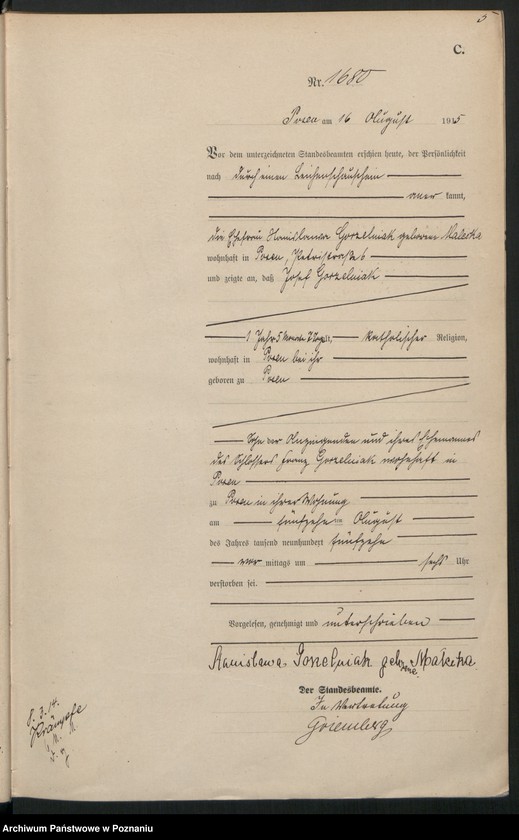 5
C.
Nr. 1680
Posen am 16 August 1915
Vor dem unterzeichneten Standesbeamten erschien heute, der Persönlichkeit
nach durch einen Leichenschauschein
aner kannt,
die Ehefrau Stanislawa Gorzelniak geborene Malecka
wohnhaft in Posen, Petristraße 6
und zeigte an, daß Josef Gorzelniak
1 Jahr 5 Monate alt, katholischer Religion,
wohnhaft in Posen bei ihr
geboren zu Posen
Sohn der Anzeigenden und ihres Ehemannes
des Schlossers Franz Gorzelniak wohnhaft in
Posen
zu Posen in ihrer Wohnung
am fünfzehn ten August
des Jahres tausend neunhundert fünfzehn
vor mittags um sechs Uhr
verstorben sei.
Vorgelesen, genehmigt und unterschrieben
Stanisława Gorzelniak geborene Małecka
Der Standesbeamte.
In Vertretung
8. 3. 14.
Archiwum Państwowe w Poznaniu